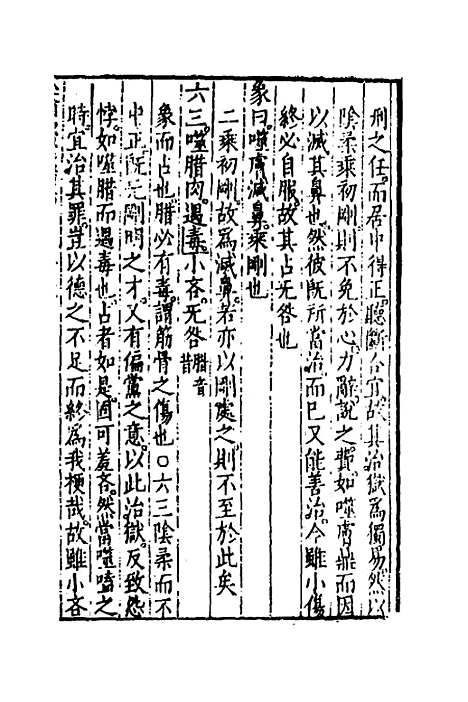 刑之任而居中得正聽斷合宜故其治獄爲獨易然以
陰柔乘初剛則不免於心力辭說之費如噬膚雖而因
以滅其鼻也然彼旣所當治而巳又能善治今雖小傷
終必自服故其占无咎也
象曰噬膚滅鼻乘剛也
二乘初剛故爲滅鼻若亦以剛處之則不至於此矣
六三噬腊肉遇毒小吝无咎腊音昔
象而占也腊必有毒謂筋骨之傷也○六三陰柔而不
中正旣无剛明之才又有偏黨之意以此治獄反致怨
悖如噬腊而遇毒也占者如是固可羞吝然當噬嗑之
時宜治其罪豈以德之不足而終爲我梗哉故雖小吝